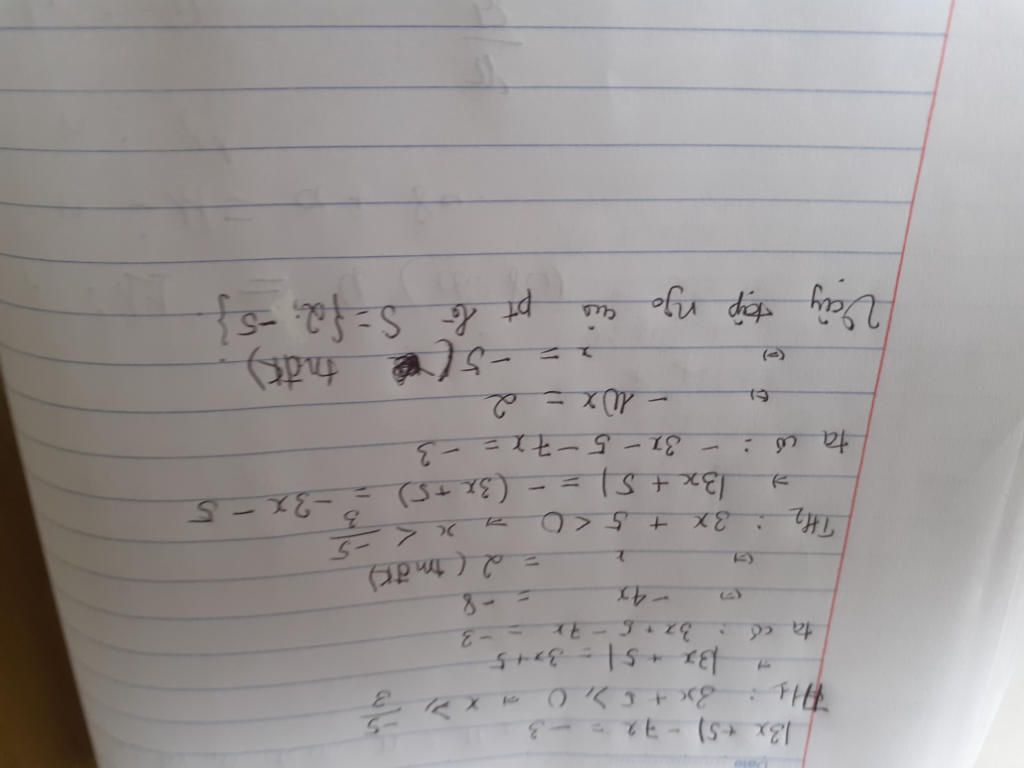 |3x + 5| - 7x = -3
TH1 : 3x + 5 ⩾ 0 ⇒ x ⩾ -5/3
⇒ |3x + 5| = 3x + 5
ta có : 3x + 5 - 7x = -3
(=) -4x = -8
(=) x = 2 (tmđk)
TH2 : 3x + 5 < 0 ⇒ x < -5/3
⇒ |3x + 5| = - (3x + 5) = -3x - 5
ta có : - 3x - 5 - 7x = -3
(=) - 10x = 2
(=) x = -5 ( tmđk) .
Vậy tập ngo củ pt là S = {2; -5} .